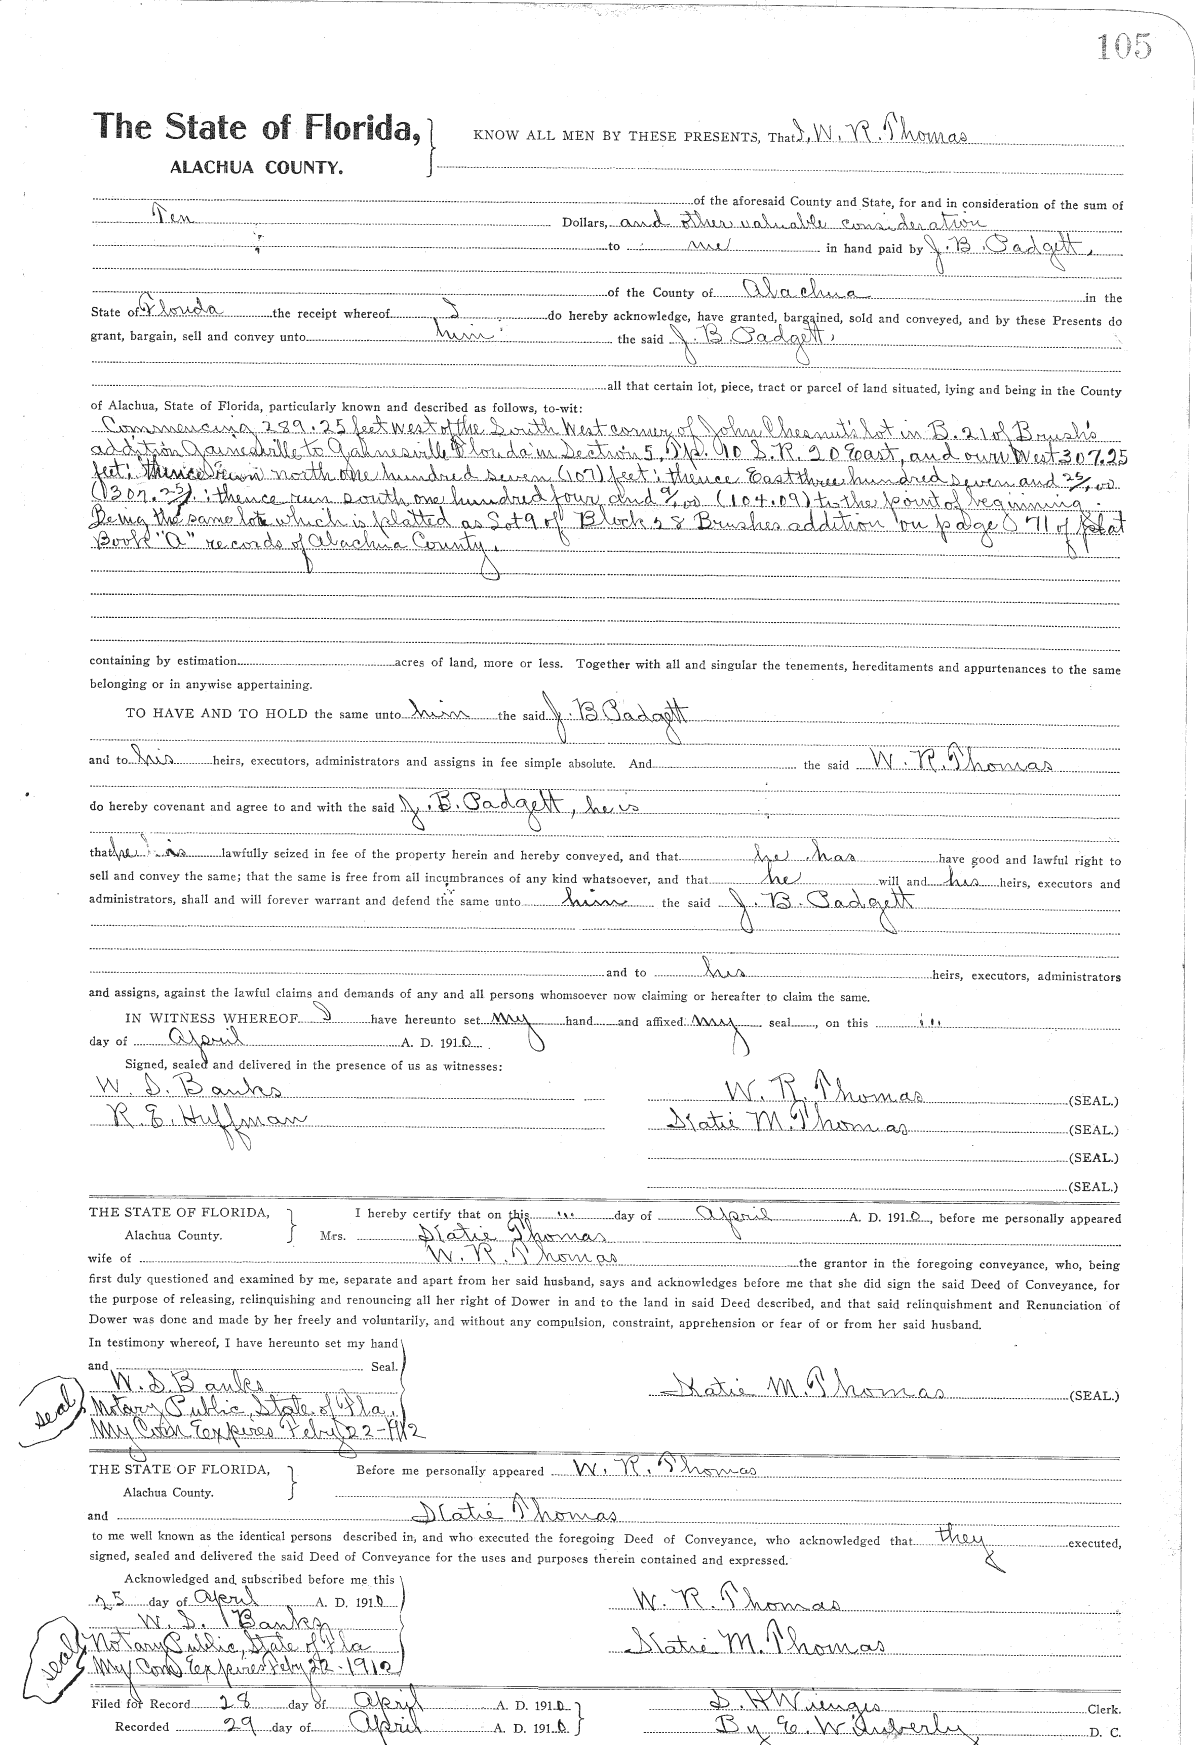 105
The State of Florida,
ALACHUA COUNTY.
KNOW ALL MEN BY THESE PRESENTS, That I, W. R. Thomas
of the aforesaid County and State, for and in consideration of the sum of
Ten Dollars, and other valuable consideration
to me in hand paid by J. B. Padgett,
of the County of Alachua in the
State of Florida the receipt whereof I do hereby acknowledge, have granted, bargained, sold and conveyed, and by these Presents do
grant, bargain, sell and convey unto him the said J. B. Padgett,
all that certain lot, piece, tract or parcel of land situated, lying and being in the County
of Alachua, State of Florida, particularly known and described as follows, to-wit:
Commencing 289.25 feet west of the South West corner of John Chesnut's lot in B. 21 of Brush's
addition Gainesville to Gainesville Florida in Section 5, Tp. 10 S. R. 20 East, and run West 307.25
feet; thence run north one hundred seven (107) feet; thence East three hundred seven and 25/100
(307.25); thence run south one hundred four and 9/100 (104.09) to the point of beginning
Being the same lot which is platted as Lot 9 of Block 28 Brushes addition on page 71 of plat
Book "A" records of Alachua County.
containing by estimation acres of land, more or less. Together with all and singular the tenements, hereditaments and appurtenances to the same
belonging or in anywise appertaining.
TO HAVE AND TO HOLD the same unto him the said J. B Padgett
and to his heirs, executors, administrators and assigns in fee simple absolute. And the said W. R. Thomas
do hereby covenant and agree to and with the said J. B. Padgett, he is
that he is lawfully seized in fee of the property herein and hereby conveyed, and that he has have good and lawful right to
sell and convey the same; that the same is free from all incumbrances of any kind whatsoever, and that he will and his heirs, executors and
administrators, shall and will forever warrant and defend the same unto him the said J. B. Padgett
and to his heirs, executors, administrators
and assigns, against the lawful claims and demands of any and all persons whomsoever now claiming or hereafter to claim the same.
IN WITNESS WHEREOF I have hereunto set my hand and affixed my seal, on this ...
day of April A. D. 1910.
Signed, sealed and delivered in the presence of us as witnesses:
W. S. Banks W. R. Thomas (SEAL.)
R. E. Huffman Katie M. Thomas (SEAL.)
(SEAL.)
(SEAL.)
THE STATE OF FLORIDA,
Alachua County.
I hereby certify that on this ... day of April A. D. 1910, before me personally appeared
Mrs. Katie Thomas
wife of W. R. Thomas the grantor in the foregoing conveyance, who, being
first duly questioned and examined by me, separate and apart from her said husband, says and acknowledges before me that she did sign the said Deed of Conveyance, for
the purpose of releasing, relinquishing and renouncing all her right of Dower in and to the land in said Deed described, and that said relinquishment and Renunciation of
Dower was done and made by her freely and voluntarily, and without any compulsion, constraint, apprehension or fear of or from her said husband.
In testimony whereof, I have hereunto set my hand
and Seal.
W. S. Banks Katie M. Thomas (SEAL.)
seal Notary Public, State of Fla,
My Com Expires Feby 22-1912
THE STATE OF FLORIDA,
Alachua County.
Before me personally appeared W. R. Thomas
and Katie Thomas
to me well known as the identical persons described in, and who executed the foregoing Deed of Conveyance, who acknowledged that they executed,
signed, sealed and delivered the said Deed of Conveyance for the uses and purposes therein contained and expressed.
Acknowledged and subscribed before me this
25 day of April A. D. 1910 W. R. Thomas
W. S. Banks
seal Notary Public, State of Fla Katie M. Thomas
My Com Expires Feby 22-1912
Filed for Record 28 day of April A. D. 1910 S. H Wienges Clerk.
Recorded 29 day of April A. D. 1910 By E. Wimberly D. C.